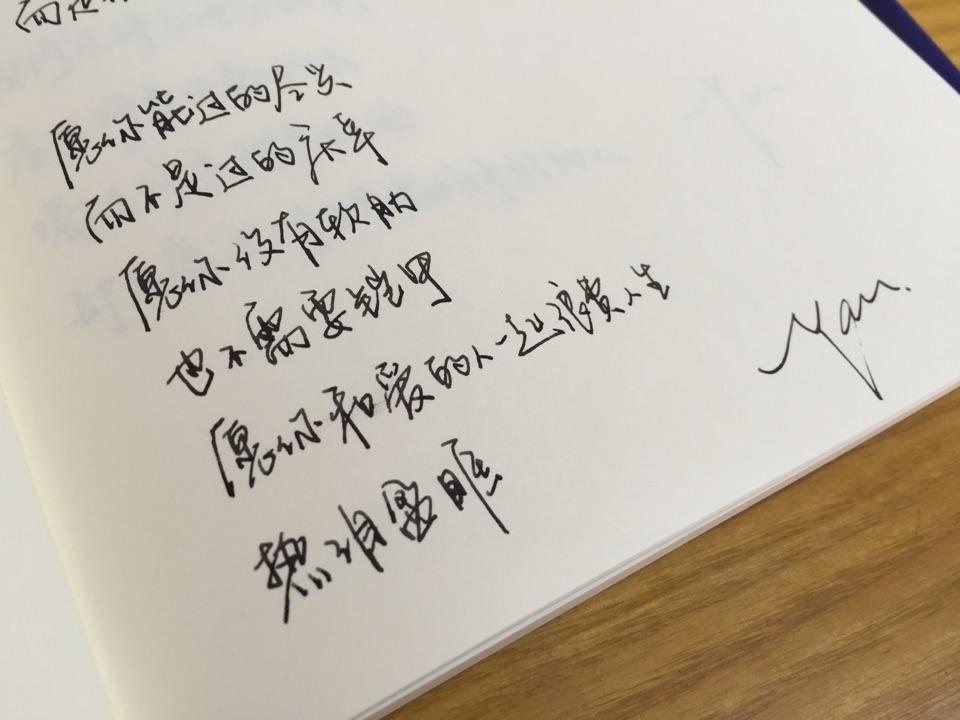 愿你能过的尽兴
而不是过的庆幸
愿你没有软肋
也不需要铠甲
愿你和爱的人一起浪费人生
热泪盈眶
Yan.